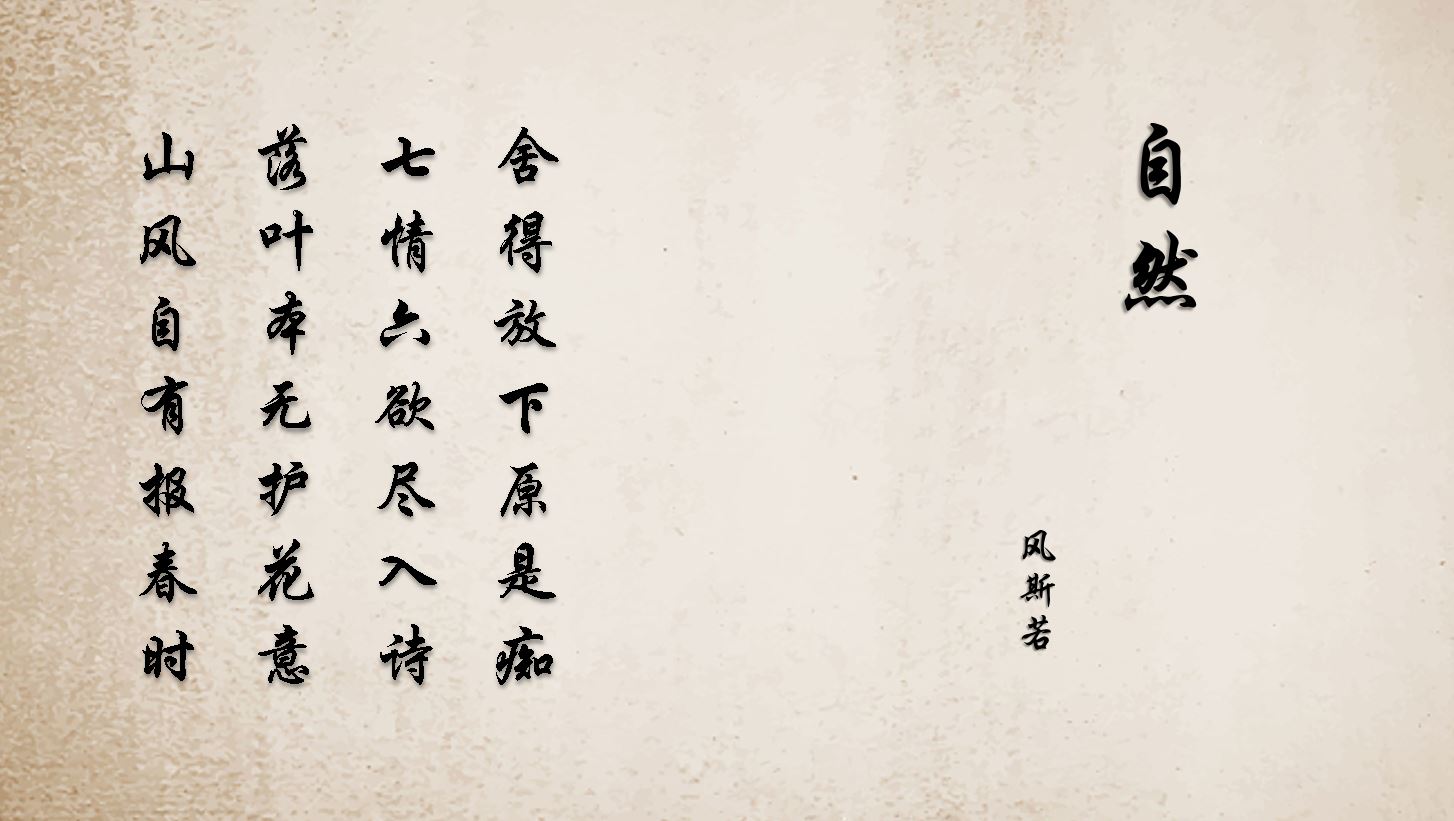 自然
风斯若
舍得放下原是痴
七情六欲尽入诗
落叶本无护花意
山风自有报春时